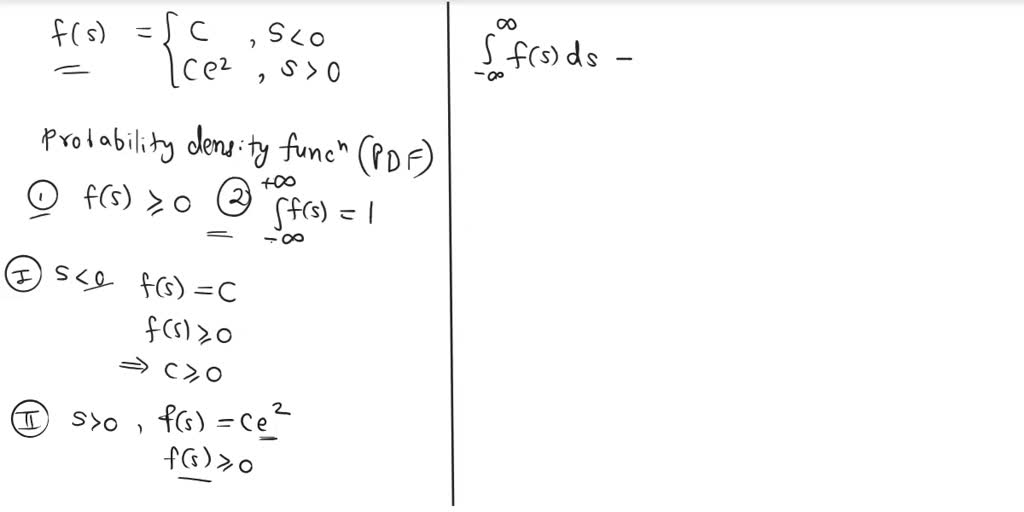 f(s) = { C , S<0
Ce² , S>0
Probability density funcⁿ (PDF)
① f(s) ⩾ 0 ② ∫₋∞⁺∞ f(s) = 1
Ⓘ S<0 f(s) = C
f(s) ⩾ 0
⇒ C ⩾ 0
Ⅱ S>0, f(s) = Ce²
f(s) ⩾ 0
∫₋∞^∞ f(s) ds –